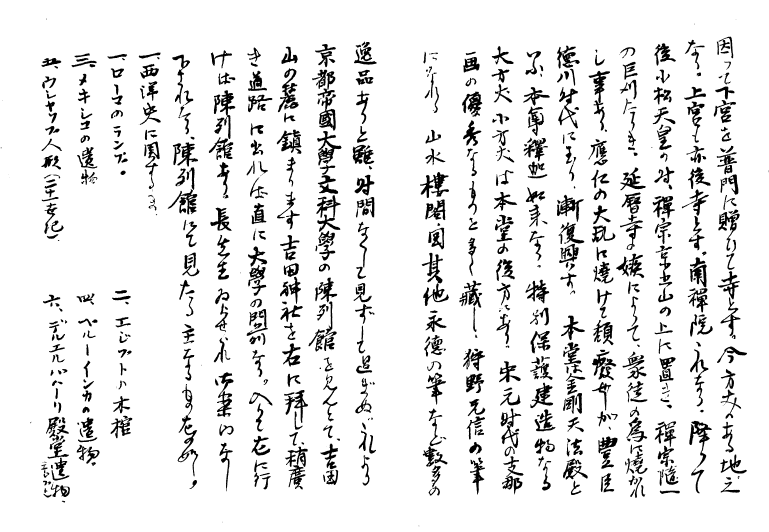 因つて下宮を普門に贈りて寺とす。今方丈のある地之
なり。上宮も亦後寺とす。南禪院これなり。降りて
後小松天皇の時、禪宗京五山の上に置き、禪宗隨一
の巨刹たりき。延暦寺の嫉によて、衆徒の為に焼かれ
し事あり、應仁の大乱に焼けて頽廢せしが、豊臣
徳川時代に至り、漸く復興す。本堂は金剛天法殿と
いふ、本尊釋迦如来なり、特別保護建造物なる
大方丈小方丈は本堂の後方にあり、宋元時代の支那
画の優秀なるものを多く藏し、狩野元信の筆
になれる山水樓閣図其他永徳の筆など数多の
逸品ありと雖、時間なくして見ずして過ぎぬ。これより
京都帝國大學文科大學の陳列館を見んとて、吉田
山の麓に鎮まります吉田神社を右に拜して、稍廣
き道路に出れば直に大學の門前なり。入りて左に行
けば陳列館あり。長先生 られ御案内なし
下されたり、陳列館にて見たる主なるもの左の如し。
一、西洋史に関するもの
一、ローマのランプ。　二、エジプトの木棺
三、メキシコの遺物　四、ペルーインカの遺物、
五、ウシャブチ人形(二十一世紀)　六、デルエルバハーリ殿堂遺物、